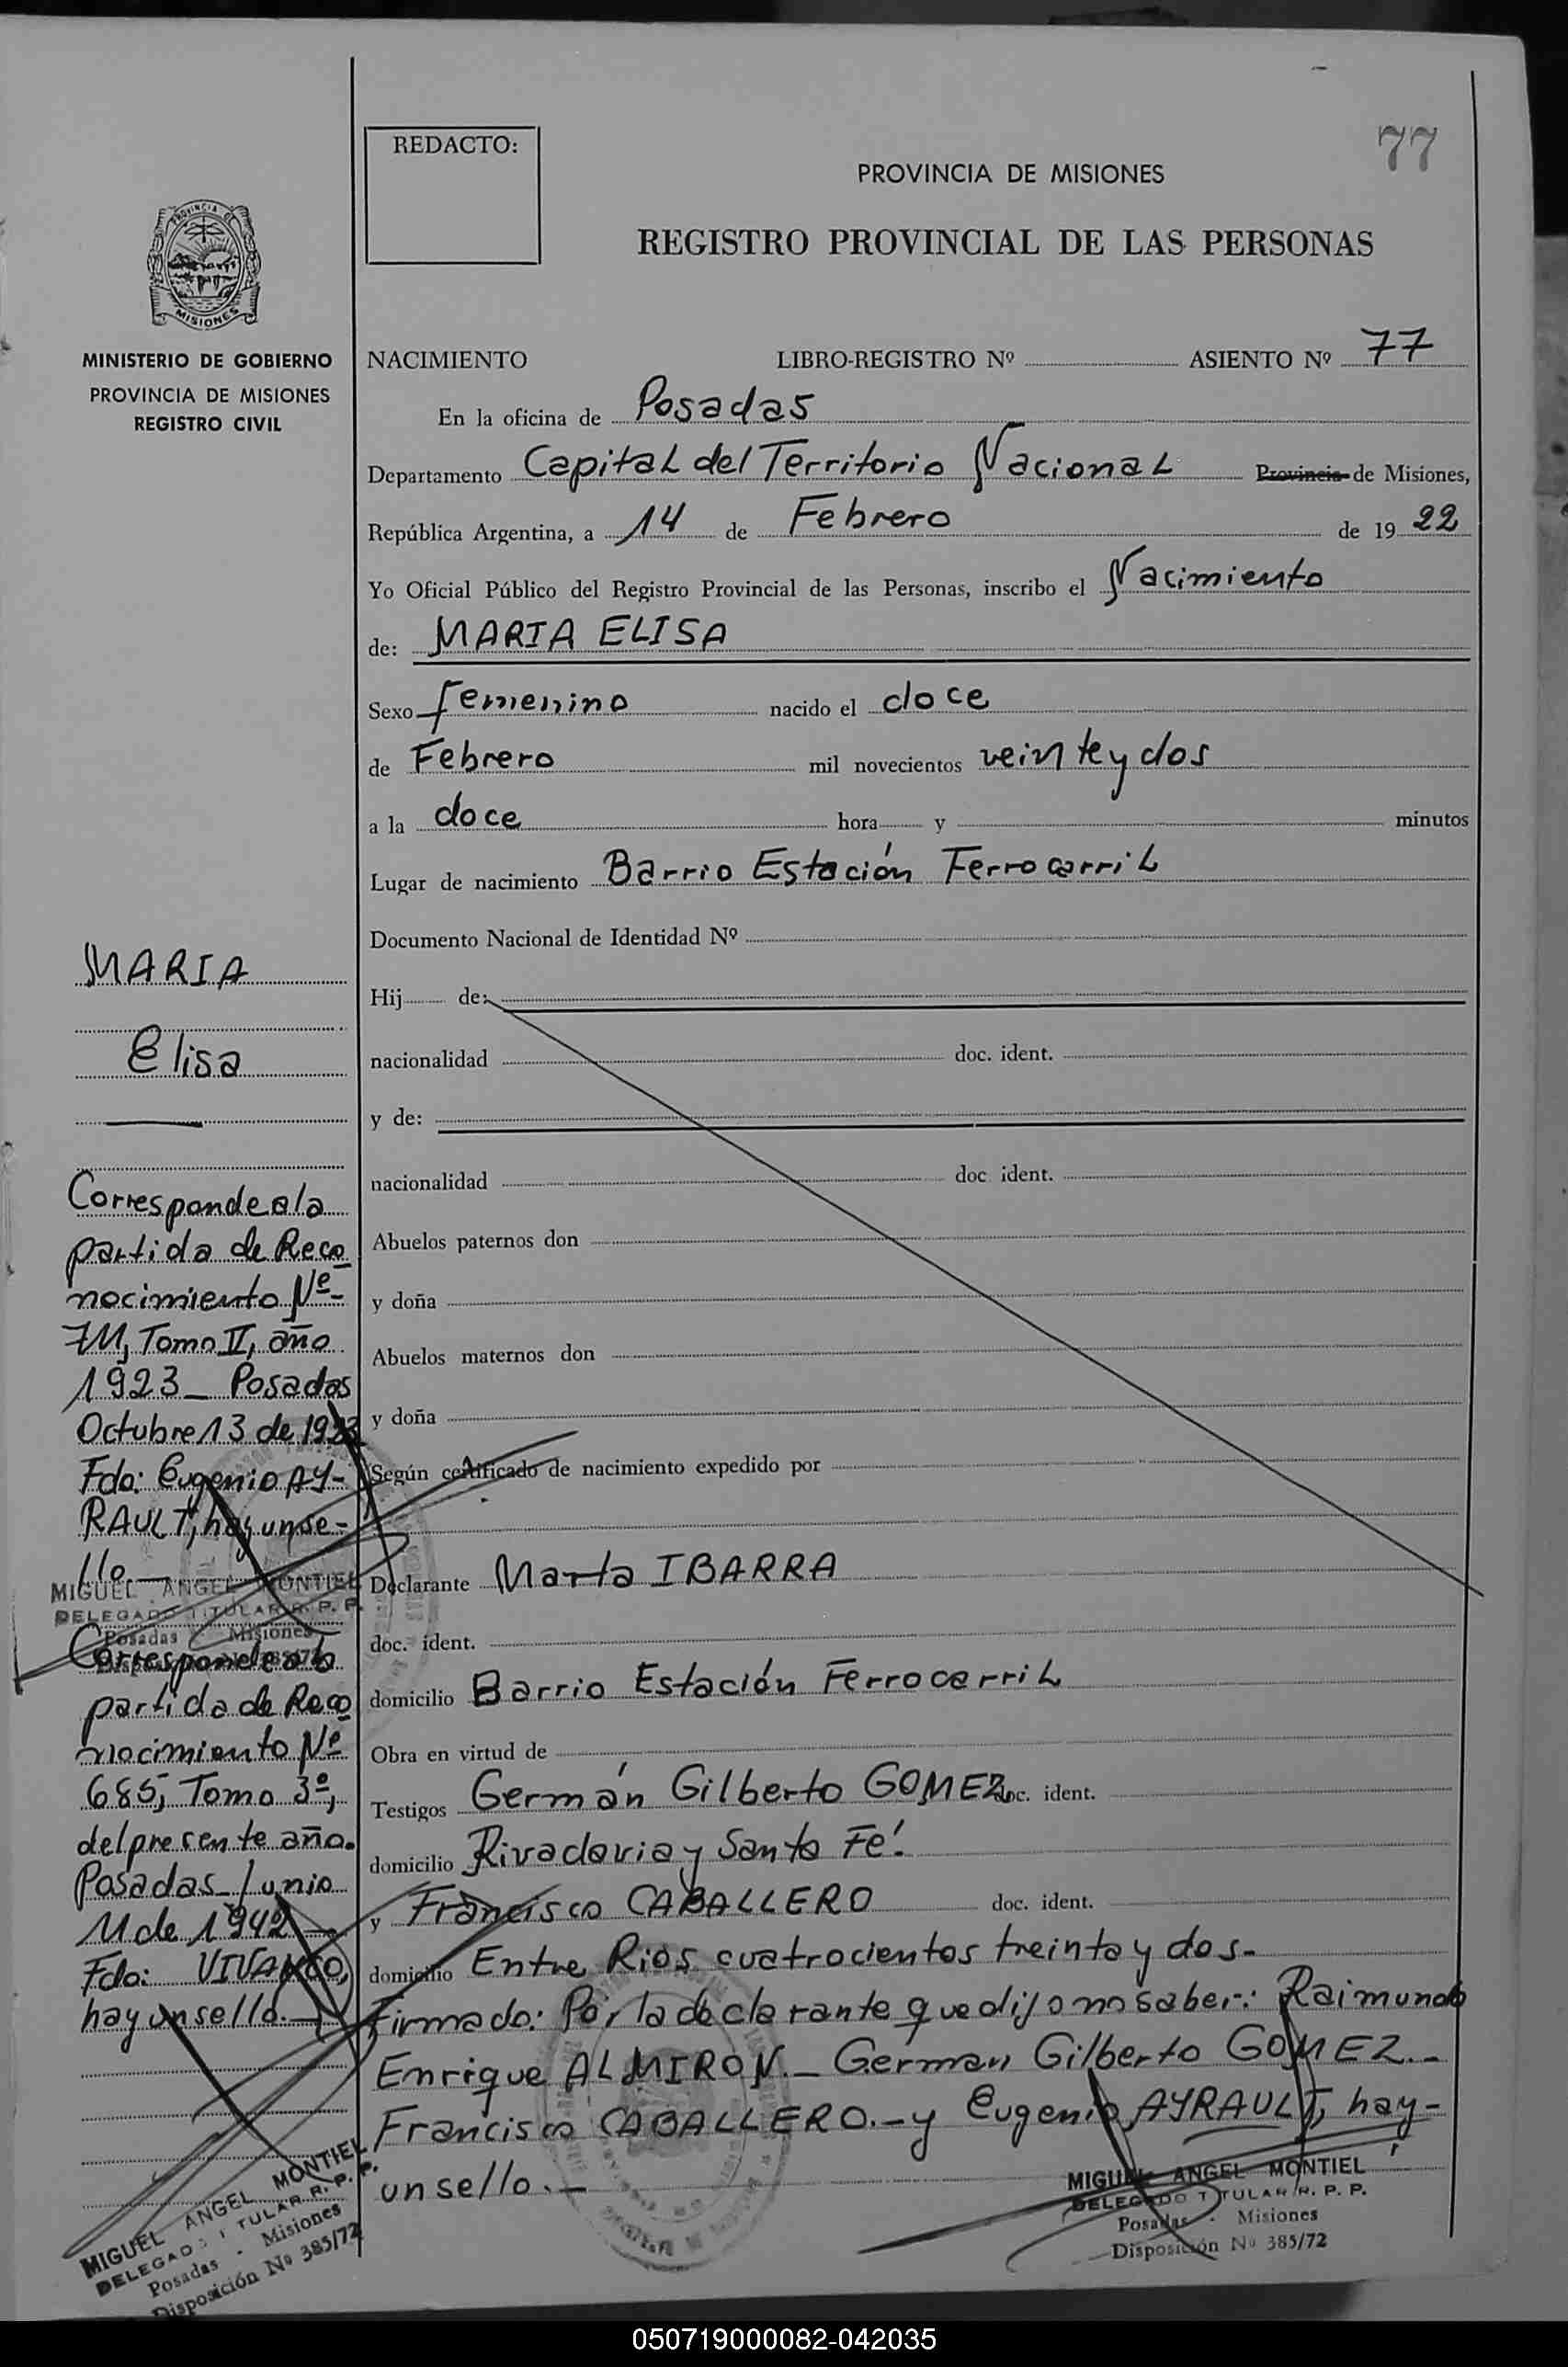 77
REDACTO:
PROVINCIA DE MISIONES
REGISTRO PROVINCIAL DE LAS PERSONAS
PROVINCIA DE
MISIONES
MINISTERIO DE GOBIERNO
PROVINCIA DE MISIONES
REGISTRO CIVIL
NACIMIENTO LIBRO-REGISTRO Nº ASIENTO Nº 77
En la oficina de Posadas
Departamento Capital del Territorio Nacional Provincia de Misiones,
República Argentina, a 14 de Febrero de 1922
Yo Oficial Público del Registro Provincial de las Personas, inscribo el Nacimiento
de: MARIA ELISA
Sexo femenino nacido el doce
de Febrero mil novecientos veinte y dos
a la doce hora y minutos
Lugar de nacimiento Barrio Estación Ferrocarril
Documento Nacional de Identidad Nº
Hij de:
nacionalidad doc. ident.
y de:
nacionalidad doc. ident.
Abuelos paternos don
y doña
Abuelos maternos don
y doña
Según certificado de nacimiento expedido por
Declarante Marta IBARRA
doc. ident.
domicilio Barrio Estación Ferrocarril
Obra en virtud de
Testigos Germán Gilberto GOMEZ doc. ident.
domicilio Rivadavia y Santa Fé.
y Francisco CABALLERO doc. ident.
domicilio Entre Rios cuatrocientos treinta y dos.
Firmado: Por la declarante que dijo no saber: Raimundo
Enrique ALMIRON._ German Gilberto GOMEZ._
Francisco CABALLERO.- y Eugenio AYRAULT, hay-
un sello._
MIGUEL ANGEL MONTIEL
DELEGADO TITULAR R. P. P.
Posadas - Misiones
Disposición Nº 385/72
MARIA
Elisa
Corresponde a la
partida de Reco
nocimiento Nº
711, Tomo II, año
1923_ Posadas
Octubre 13 de 1923
Fdo: Eugenio AY-
RAULT, hay un se-
llo._
MIGUEL ANGEL MONTIEL
DELEGADO TITULAR R. P. P.
Posadas Misiones
Corresponde a la
partida de Reco
nocimiento Nº
685, Tomo 3º,
del presente año.
Posadas_ Junio
11 de 1942
Fdo: VIVANCO,
hay un sello._
MIGUEL ANGEL MONTIEL
DELEGADO TITULAR R. P. P.
Posadas - Misiones
Disposición Nº 385/72
050719000082-042035